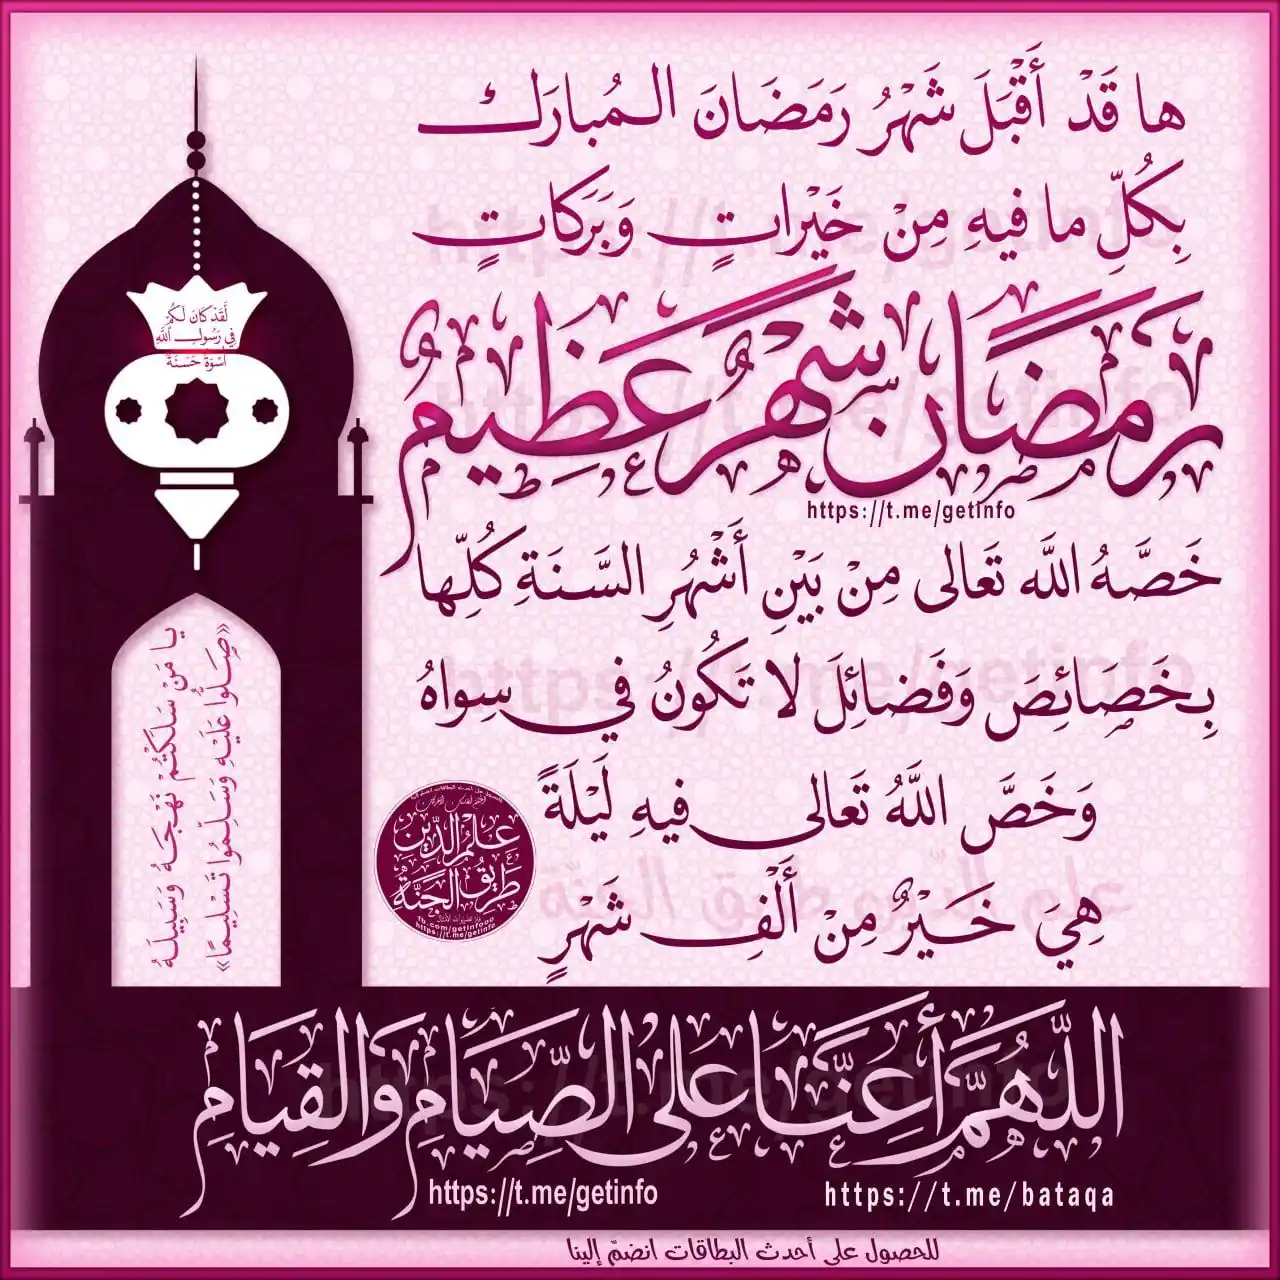 ها قَدْ أَقْبَلَ شَهْرُ رَمَضَانَ الـمُبارَك
بِكُلِّ ما فيهِ مِنْ خَيْراتٍ وَبَرَكاتٍ
رَمَضَان شَهْرٌ عَظِيمٌ
https://t.me/getinfo
خَصَّهُ اللَّه تَعالى مِنْ بَيْنِ أَشْهُرِ السَّنَةِ كُلِّها
بِخَصَائِصَ وَفَضائِلَ لا تَكُونُ في سِواهُ
وَخَصَّ اللَّهُ تَعالى فيهِ لَيْلَةً
هِيَ خَيْرٌ مِنْ أَلْفِ شَهْرٍ
لَقَدْ كَانَ لَكُمْ
فِي رَسُولِ اللَّهِ
أُسْوَةٌ حَسَنَةٌ
يا مَنْ سَلَكْتُمْ نَهْجَهُ وَسَبِيلَهُ
«صَلُّوا عَلَيْهِ وَسَلِّمُوا تَسْلِيمًا»
عِلْمُ الدِّينِ
طَرِيقُ الجَنَّةِ
fb.com/getinfooo
https://t.me/getinfo
اللَّهُمَّ أَعِنَّا عَلى الصِّيَامِ وَالقِيَامِ
https://t.me/getinfo
https://t.me/bataqa
للحصول على أحدث البطاقات انضمّ إلينا